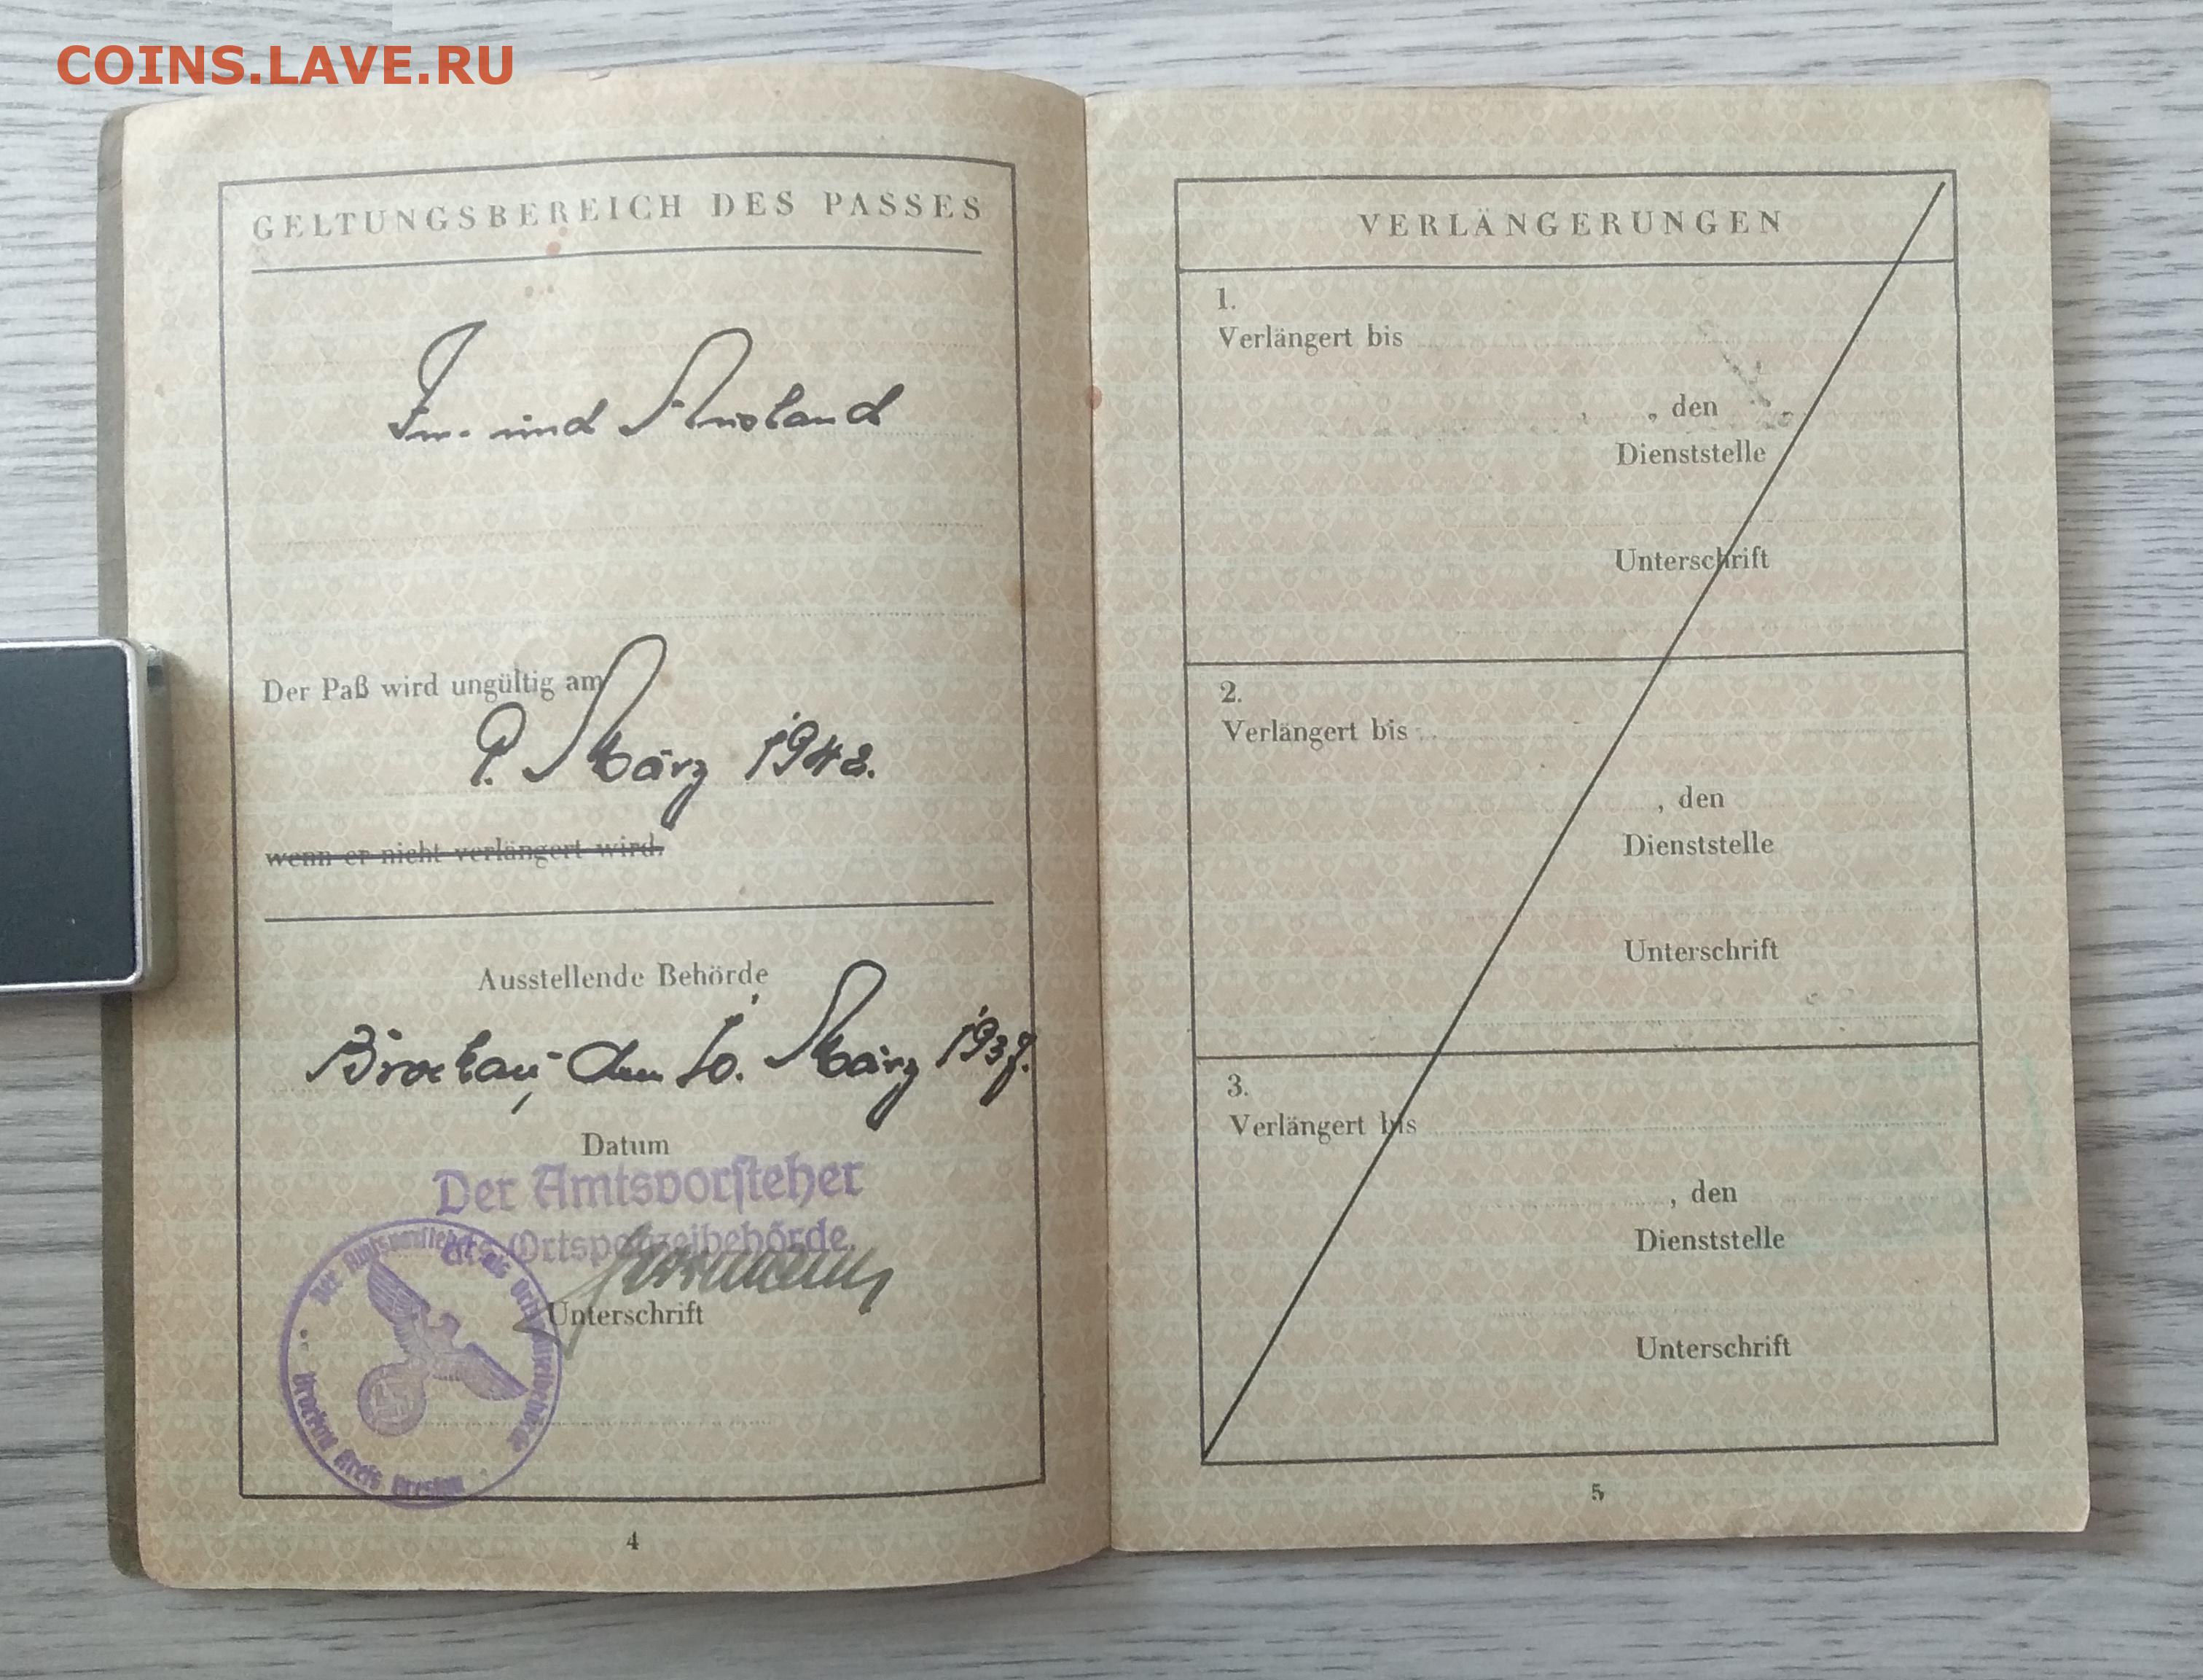 COINS.LAVE.RU
GELTUNGSBEREICH DES PASSES
In- und Ausland
Der Paß wird ungültig am
9. März 1942.
wenn er nicht verlängert wird.
Ausstellende Behörde
Brockau, den 10. März 1937.
Datum
Der Amtsvorsteher
als Ortspolizeibehörde
Unterschrift
Der Amtsvorsteher als Ortspolizeibehörde
Brockau Kreis Breslau
4
VERLÄNGERUNGEN
1.
Verlängert bis
, den
Dienststelle
Unterschrift
2.
Verlängert bis
, den
Dienststelle
Unterschrift
3.
Verlängert bis
, den
Dienststelle
Unterschrift
5